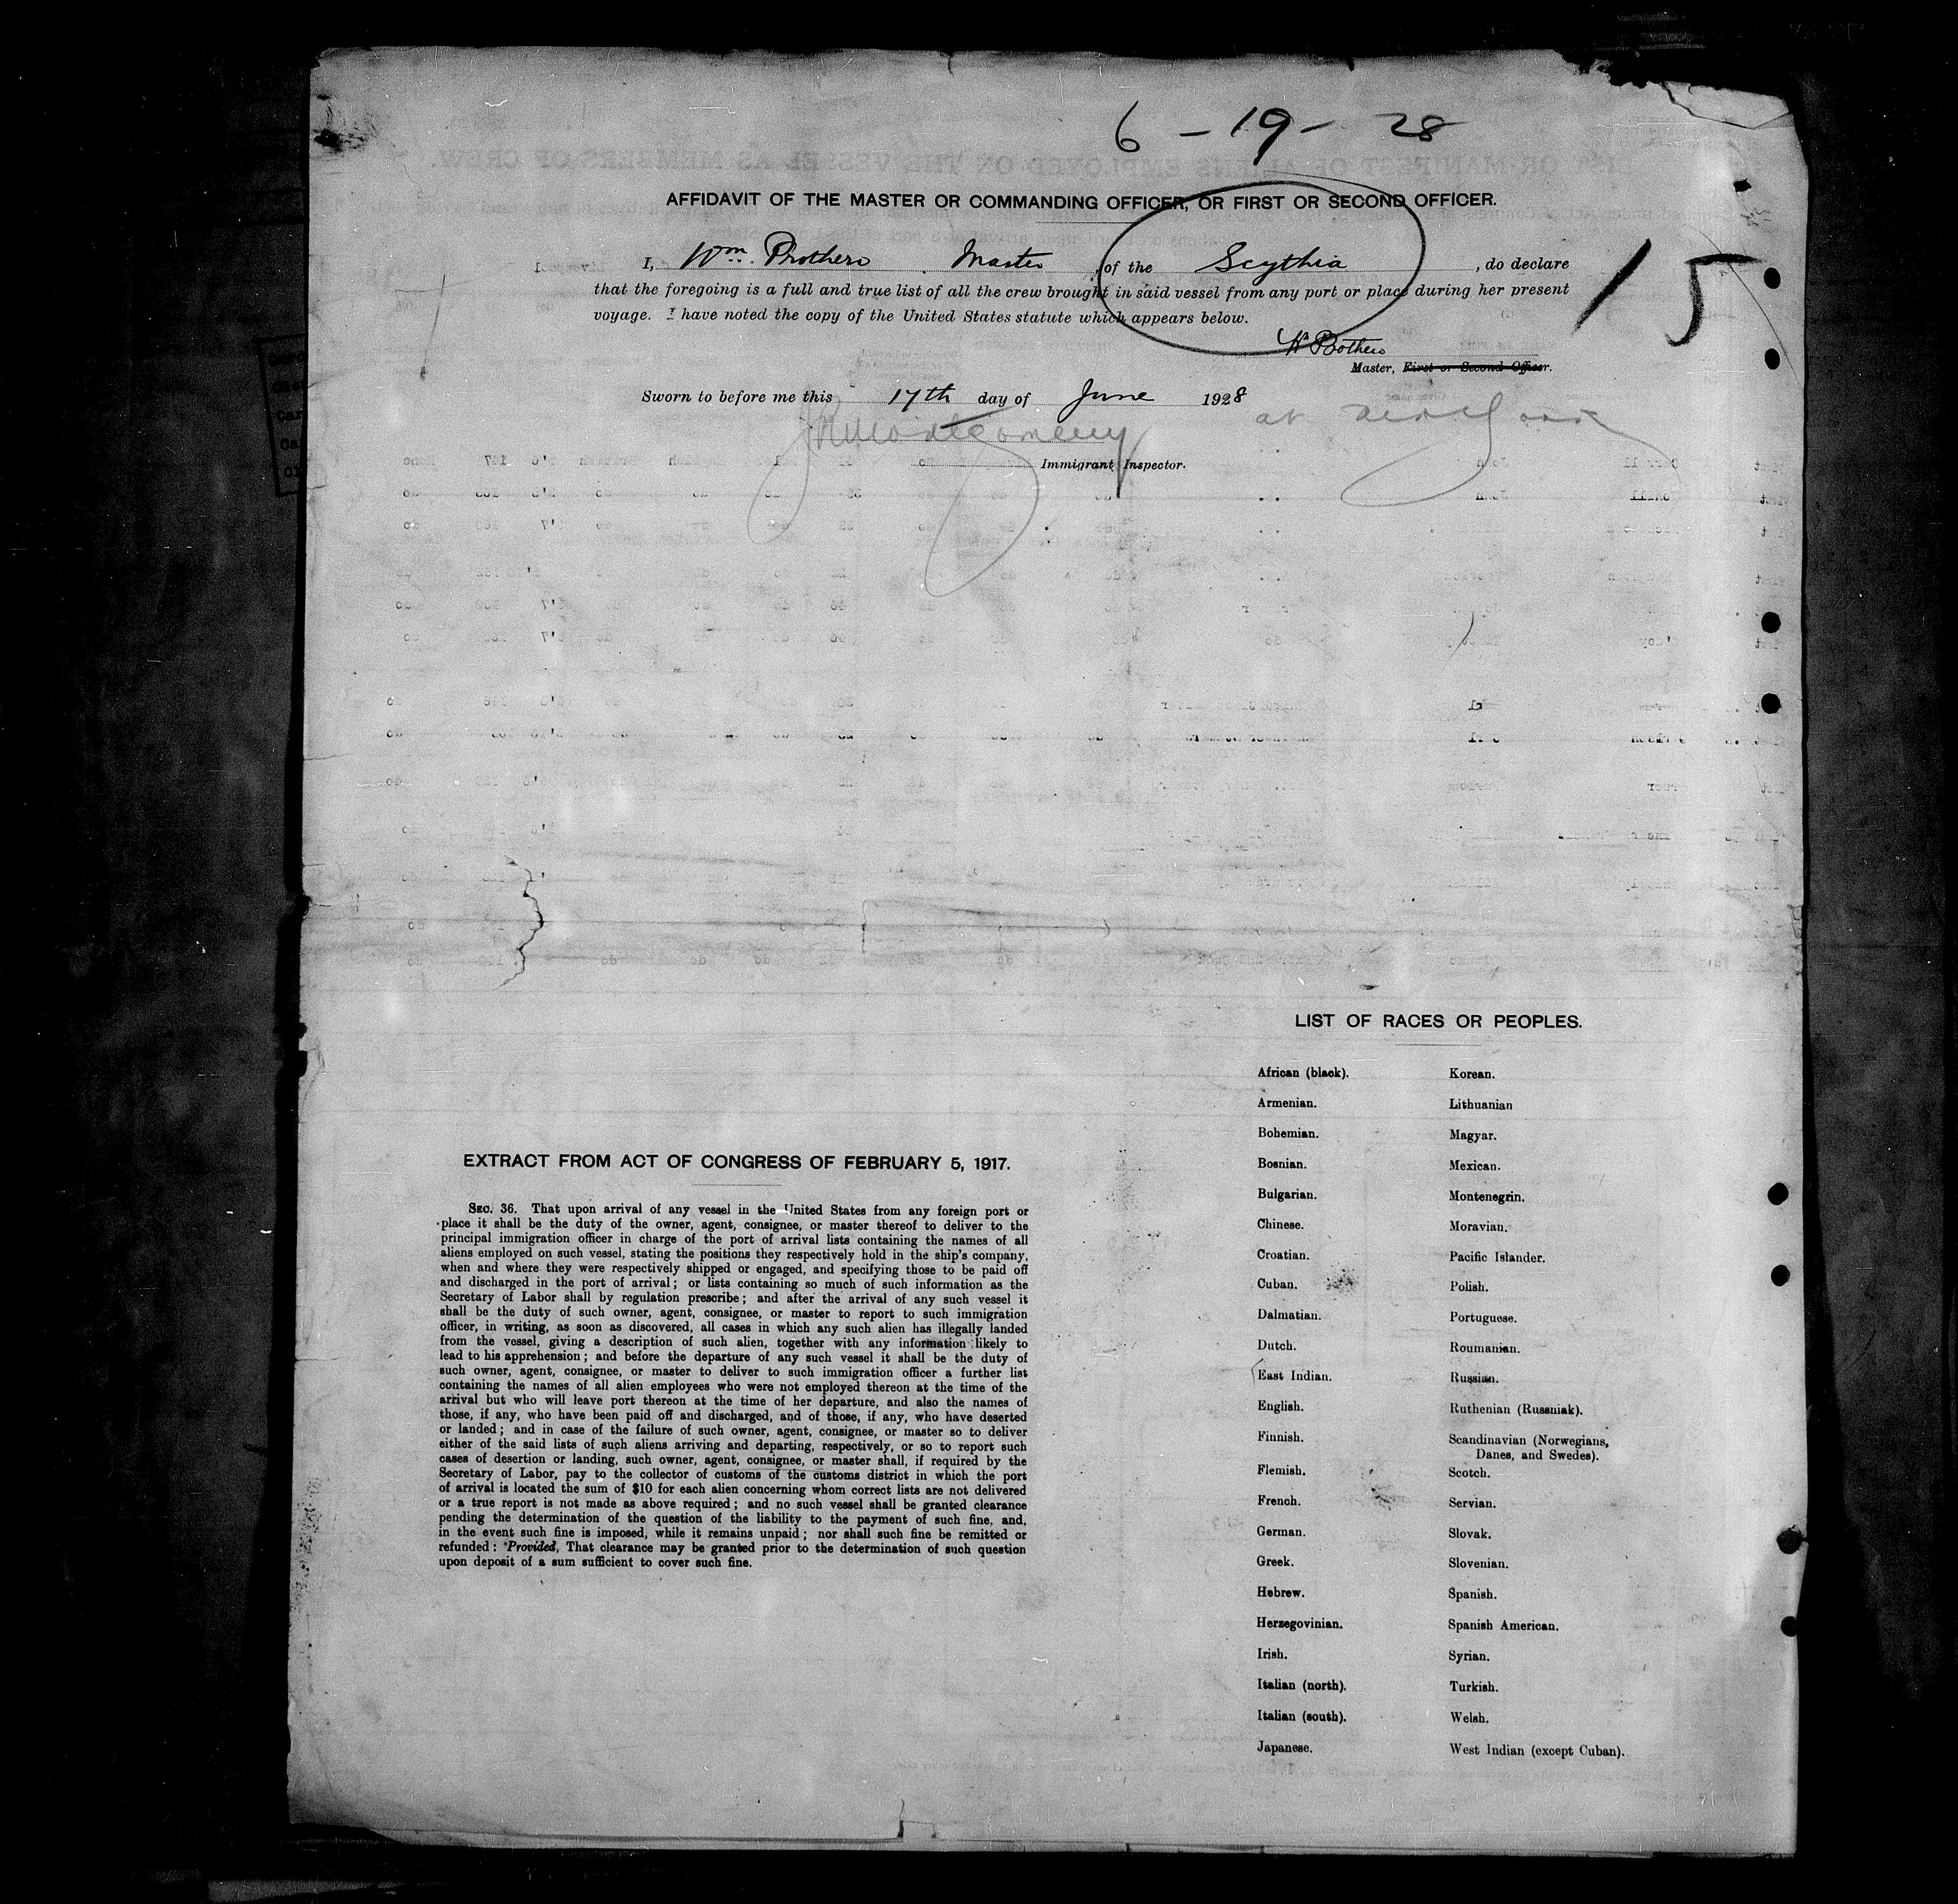 6 - 19 - 28
AFFIDAVIT OF THE MASTER OR COMMANDING OFFICER, OR FIRST OR SECOND OFFICER.
I, Wm. Prothero, Master, of the Scythia, do declare
that the foregoing is a full and true list of all the crew brought in said vessel from any port or place during her present
voyage. I have noted the copy of the United States statute which appears below.
15
W Prothero
Master, First or Second Officer.
Sworn to before me this 17th day of June 1928
Montgomery at New York
Immigrant Inspector.
LIST OF RACES OR PEOPLES.
African (black). Korean.
Armenian. Lithuanian
Bohemian. Magyar.
Bosnian. Mexican.
Bulgarian. Montenegrin.
Chinese. Moravian.
Croatian. Pacific Islander.
Cuban. Polish.
Dalmatian. Portuguese.
Dutch. Roumanian.
East Indian. Russian.
English. Ruthenian (Russniak).
Finnish. Scandinavian (Norwegians,
Danes, and Swedes).
Flemish. Scotch.
French. Servian.
German. Slovak.
Greek. Slovenian.
Hebrew. Spanish.
Herzegovinian. Spanish American.
Irish. Syrian.
Italian (north). Turkish.
Italian (south). Welsh.
Japanese. West Indian (except Cuban).
EXTRACT FROM ACT OF CONGRESS OF FEBRUARY 5, 1917.
SEC. 36. That upon arrival of any vessel in the United States from any foreign port or
place it shall be the duty of the owner, agent, consignee, or master thereof to deliver to the
principal immigration officer in charge of the port of arrival lists containing the names of all
aliens employed on such vessel, stating the positions they respectively hold in the ship's company,
when and where they were respectively shipped or engaged, and specifying those to be paid off
and discharged in the port of arrival; or lists containing so much of such information as the
Secretary of Labor shall by regulation prescribe; and after the arrival of any such vessel it
shall be the duty of such owner, agent, consignee, or master to report to such immigration
officer, in writing, as soon as discovered, all cases in which any such alien has illegally landed
from the vessel, giving a description of such alien, together with any information likely to
lead to his apprehension; and before the departure of any such vessel it shall be the duty of
such owner, agent, consignee, or master to deliver to such immigration officer a further list
containing the names of all alien employees who were not employed thereon at the time of the
arrival but who will leave port thereon at the time of her departure, and also the names of
those, if any, who have been paid off and discharged, and of those, if any, who have deserted
or landed; and in case of the failure of such owner, agent, consignee, or master so to deliver
either of the said lists of such aliens arriving and departing, respectively, or so to report such
cases of desertion or landing, such owner, agent, consignee, or master shall, if required by the
Secretary of Labor, pay to the collector of customs of the customs district in which the port
of arrival is located the sum of $10 for each alien concerning whom correct lists are not delivered
or a true report is not made as above required; and no such vessel shall be granted clearance
pending the determination of the question of the liability to the payment of such fine, and,
in the event such fine is imposed, while it remains unpaid; nor shall such fine be remitted or
refunded: Provided, That clearance may be granted prior to the determination of such question
upon deposit of a sum sufficient to cover such fine.